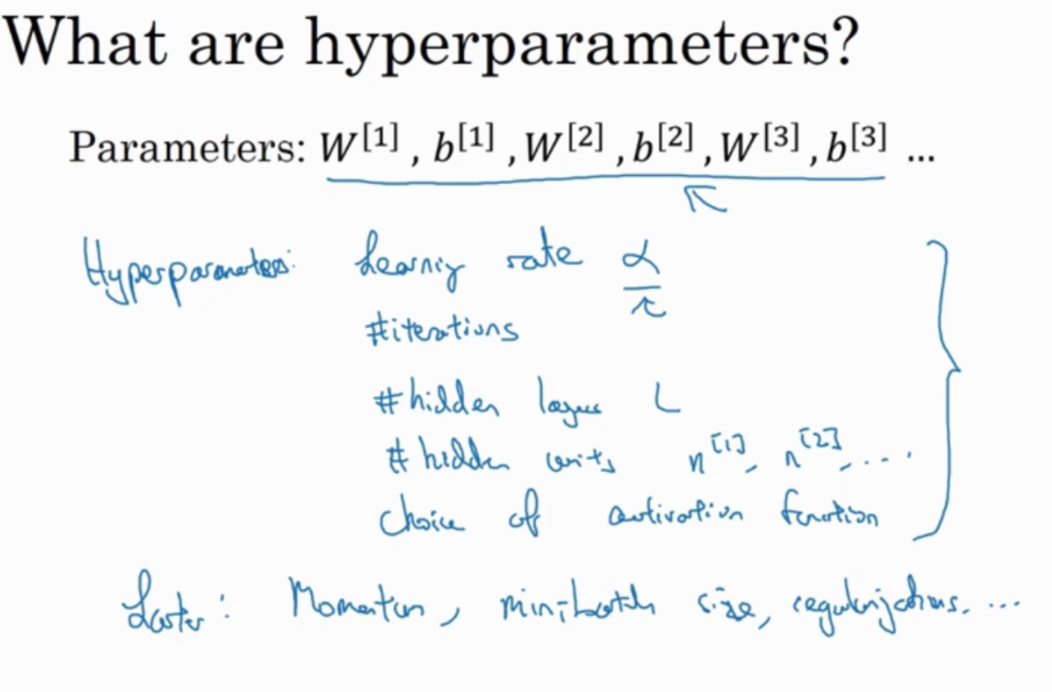 What are hyperparameters?
Parameters: W^[1] , b^[1] , W^[2] , b^[2] , W^[3] , b^[3] ...
Hyperparameters: Learning rate α
#iterations
#hidden layers L
# hidden units n^[1], n^[2], ....
Choice of activation function
Later: Momentum, mini-batch size, regularizations. ...